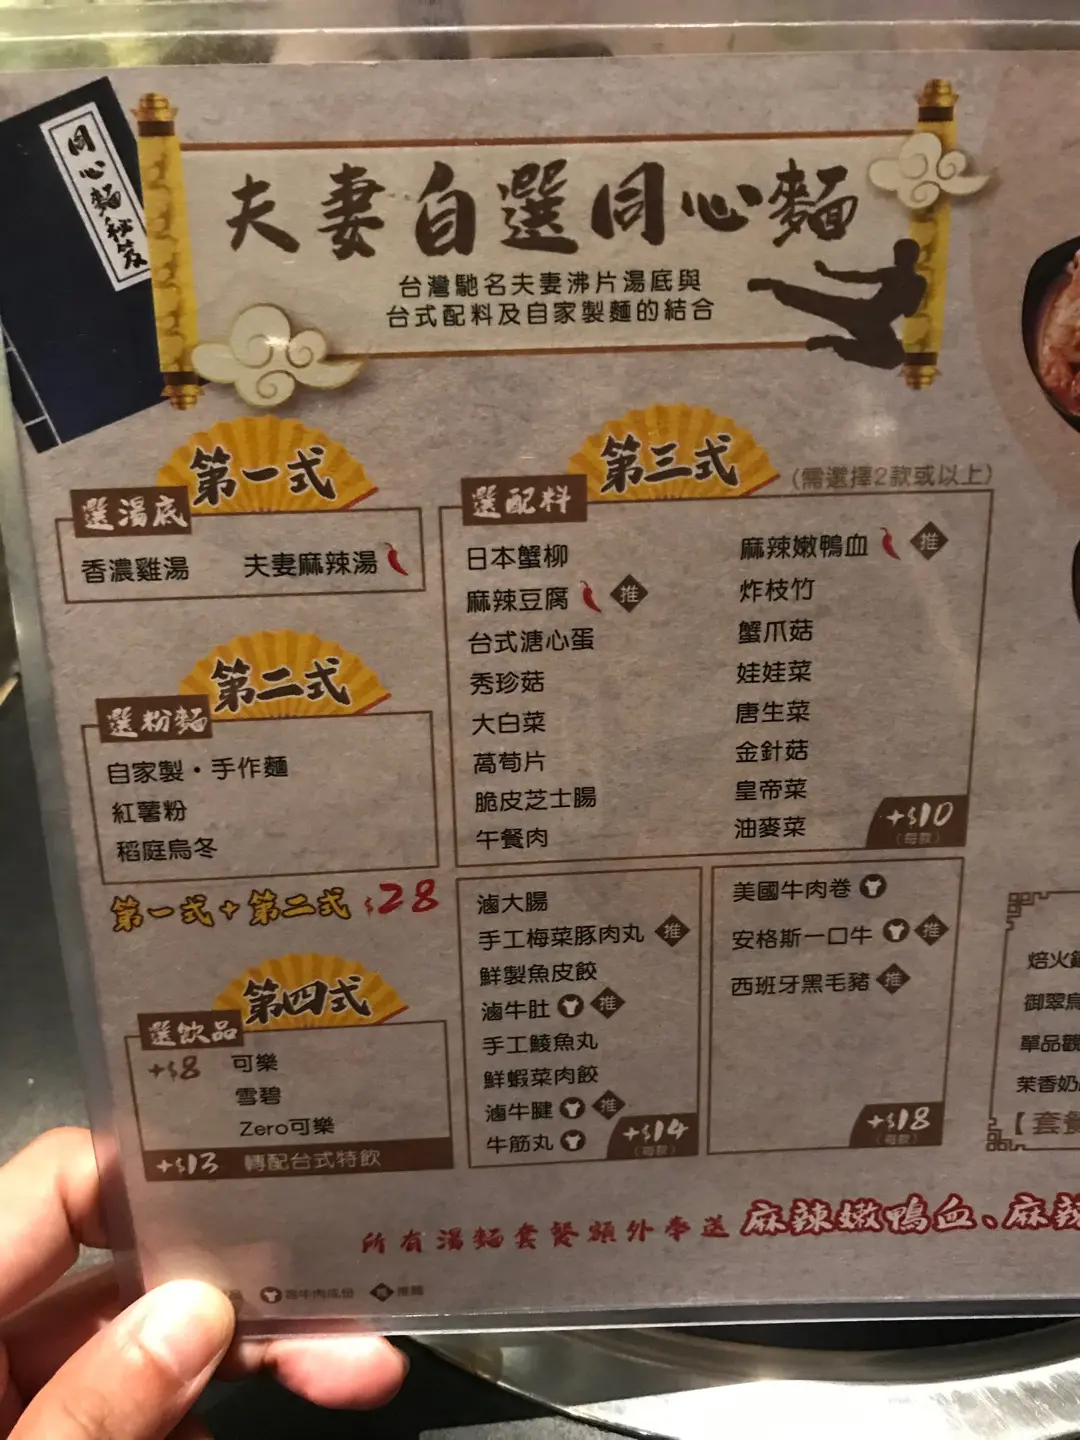 同心麵秘笈
夫妻自選同心麵
台灣馳名夫妻沸片湯底與
台式配料及自家製麵的結合
第一式
選湯底
香濃雞湯 夫妻麻辣湯
第二式
選粉麵
自家製・手作麵
紅薯粉
稻庭烏冬
第一式+第二式 $28
第三式
(需選擇2款或以上)
選配料
日本蟹柳
麻辣豆腐 推
台式溏心蛋
秀珍菇
大白菜
萵荀片
脆皮芝士腸
午餐肉
麻辣嫩鴨血 推
炸枝竹
蟹爪菇
娃娃菜
唐生菜
金針菇
皇帝菜
油麥菜
+$10
(每款)
滷大腸
手工梅菜豚肉丸 推
鮮製魚皮餃
滷牛肚 推
手工鯪魚丸
鮮蝦菜肉餃
滷牛腱 推
牛筋丸
+$14
(每款)
美國牛肉卷
安格斯一口牛 推
西班牙黑毛豬 推
+$18
(每款)
第四式
選飲品
+$8 可樂
雪碧
Zero可樂
+$13 轉配台式特飲
焙火
御翠烏
單品觀
茉香奶
【套餐
所有湯麵套餐額外奉送 麻辣嫩鴨血、麻辣
品 含牛肉成份 推 推薦